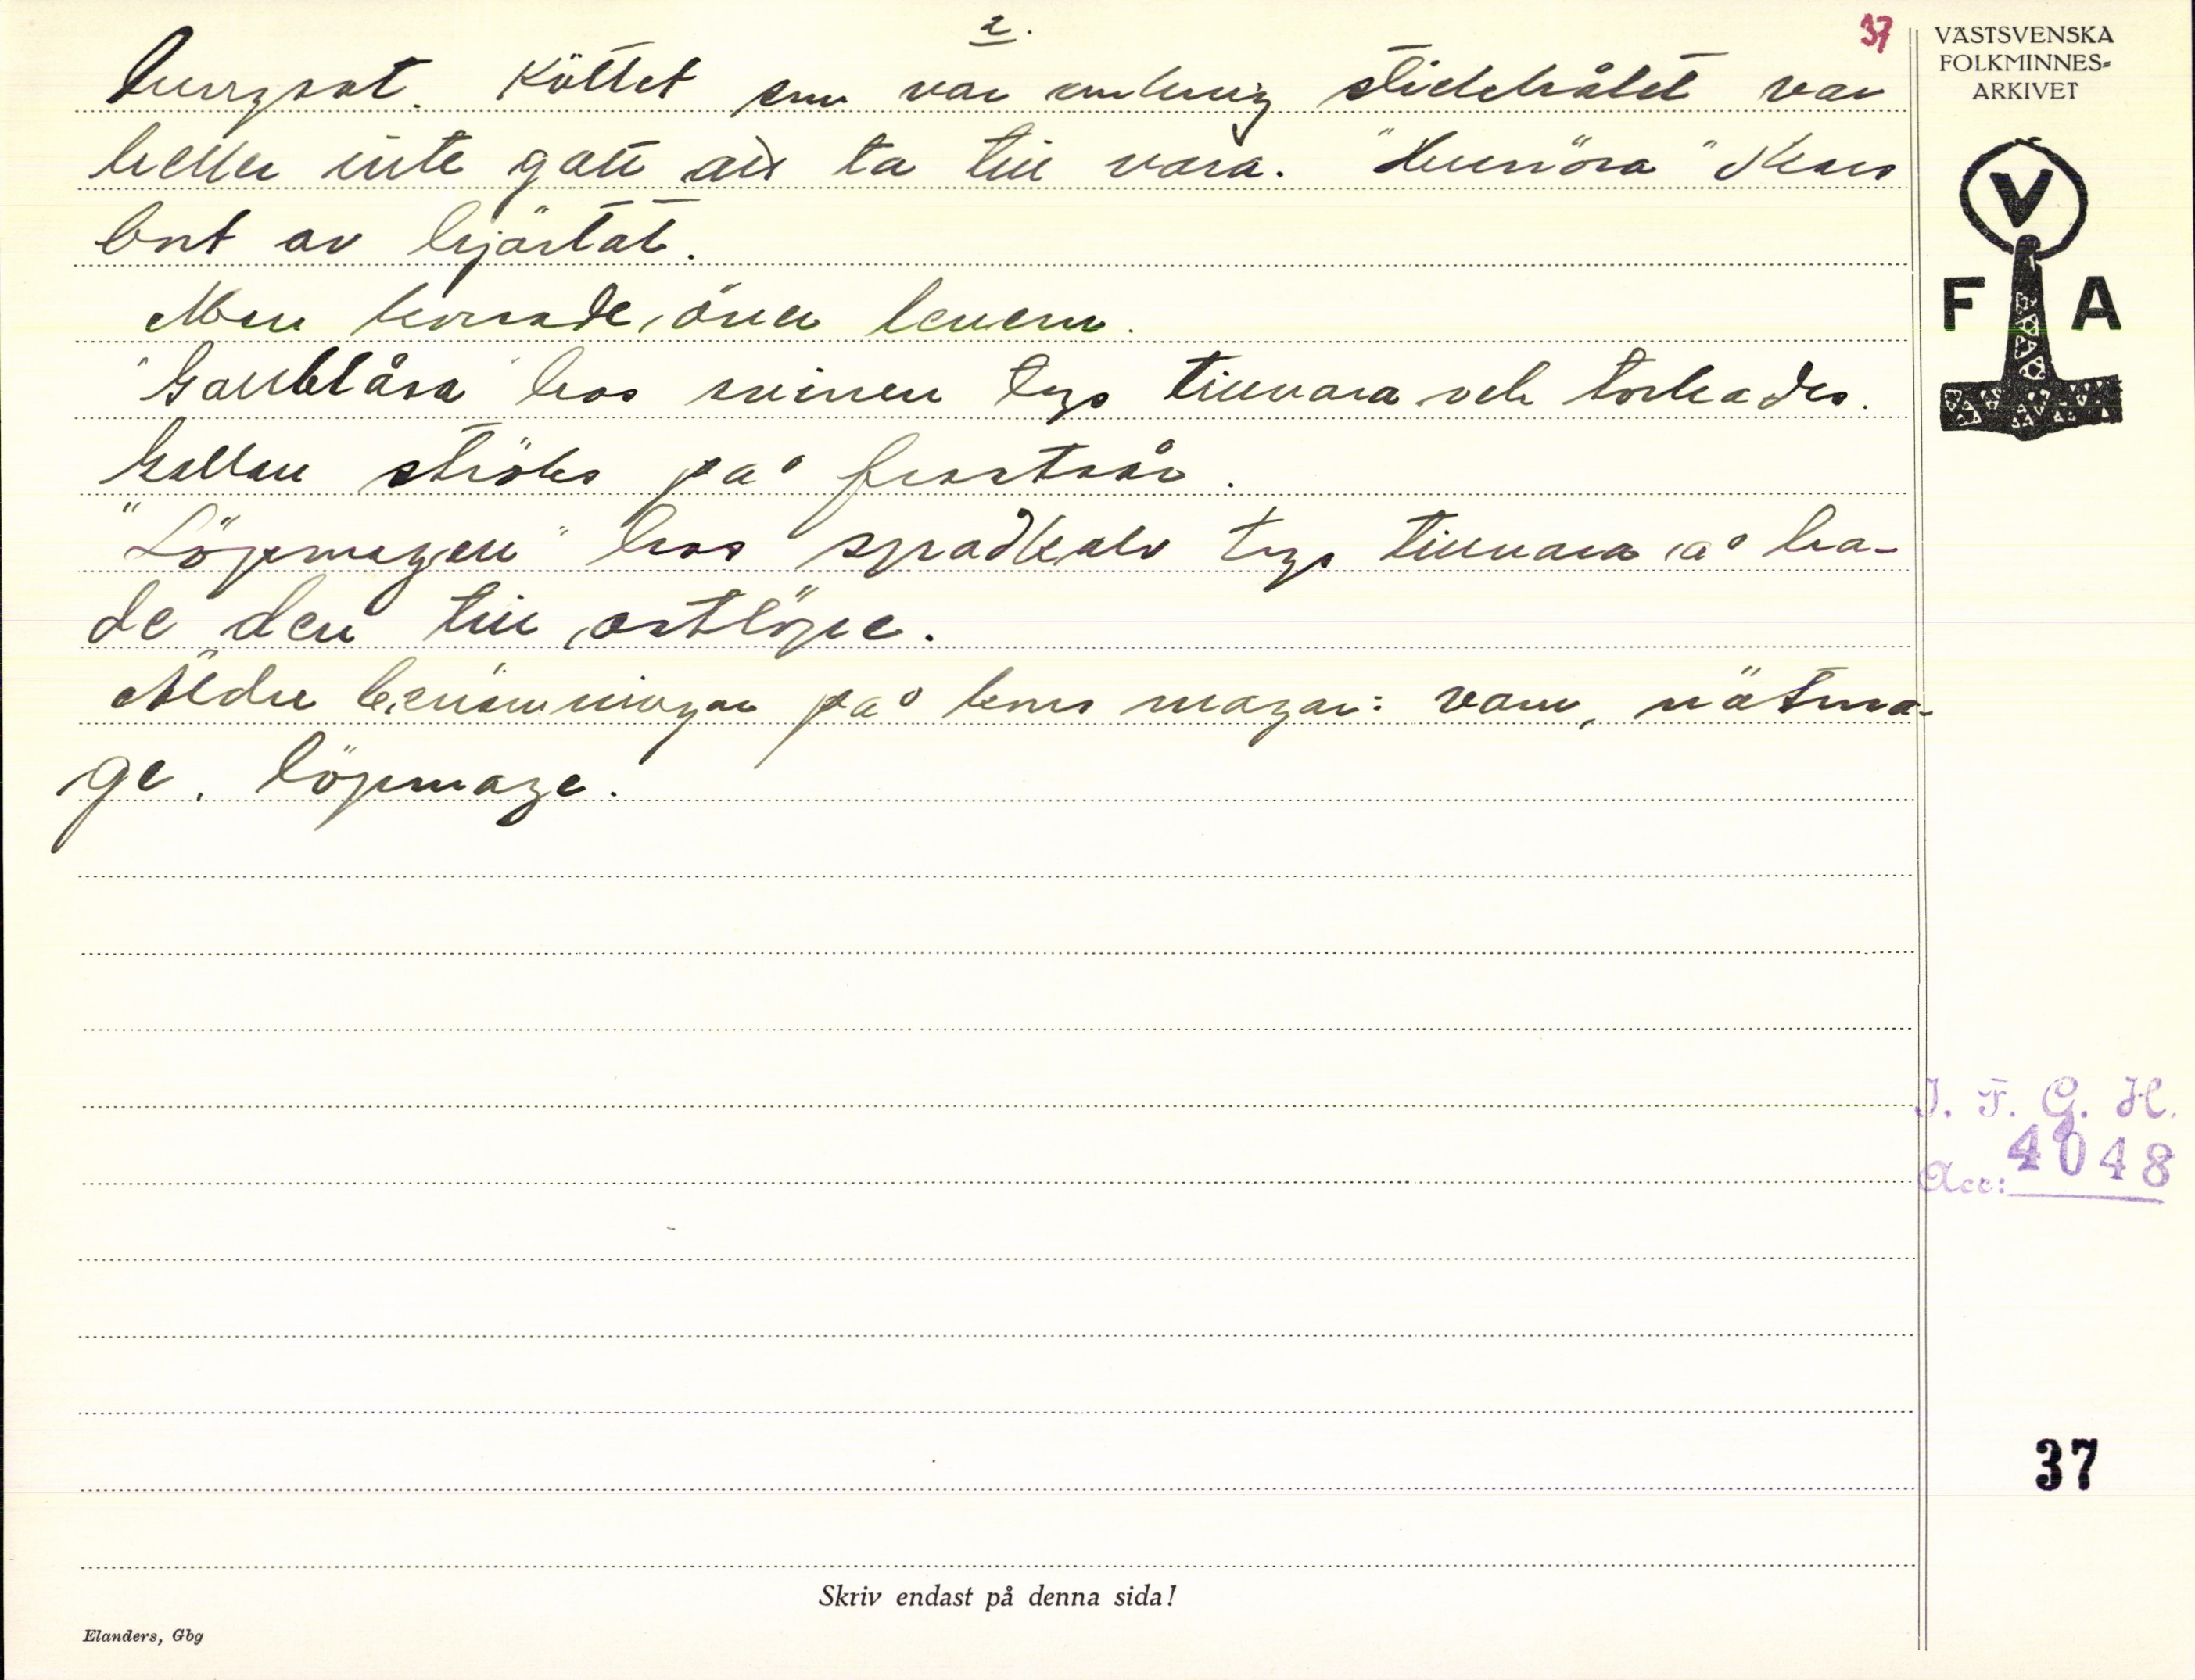 2.
37
hungsot. Köttet som var omkring stickhålet var
heller inte gott att ta till vara. "Hunöra" skars
bort av hjärtat.
Man korsade över levern.
"Gallblåsa" hos svinen togs tillvara och torkades.
Gallan ströks på frostsår.
"Löpmagen" hos spädkalv togs tillvara å ha-
de den till ostlöpe.
Äldre benämningar på kons magar: vom, nätma-
ge, löpmage.
VÄSTSVENSKA
FOLKMINNES-
ARKIVET
V
F A
I. F. G. H.
Acc: 4048
37
Skriv endast på denna sida!
Elanders, Gbg